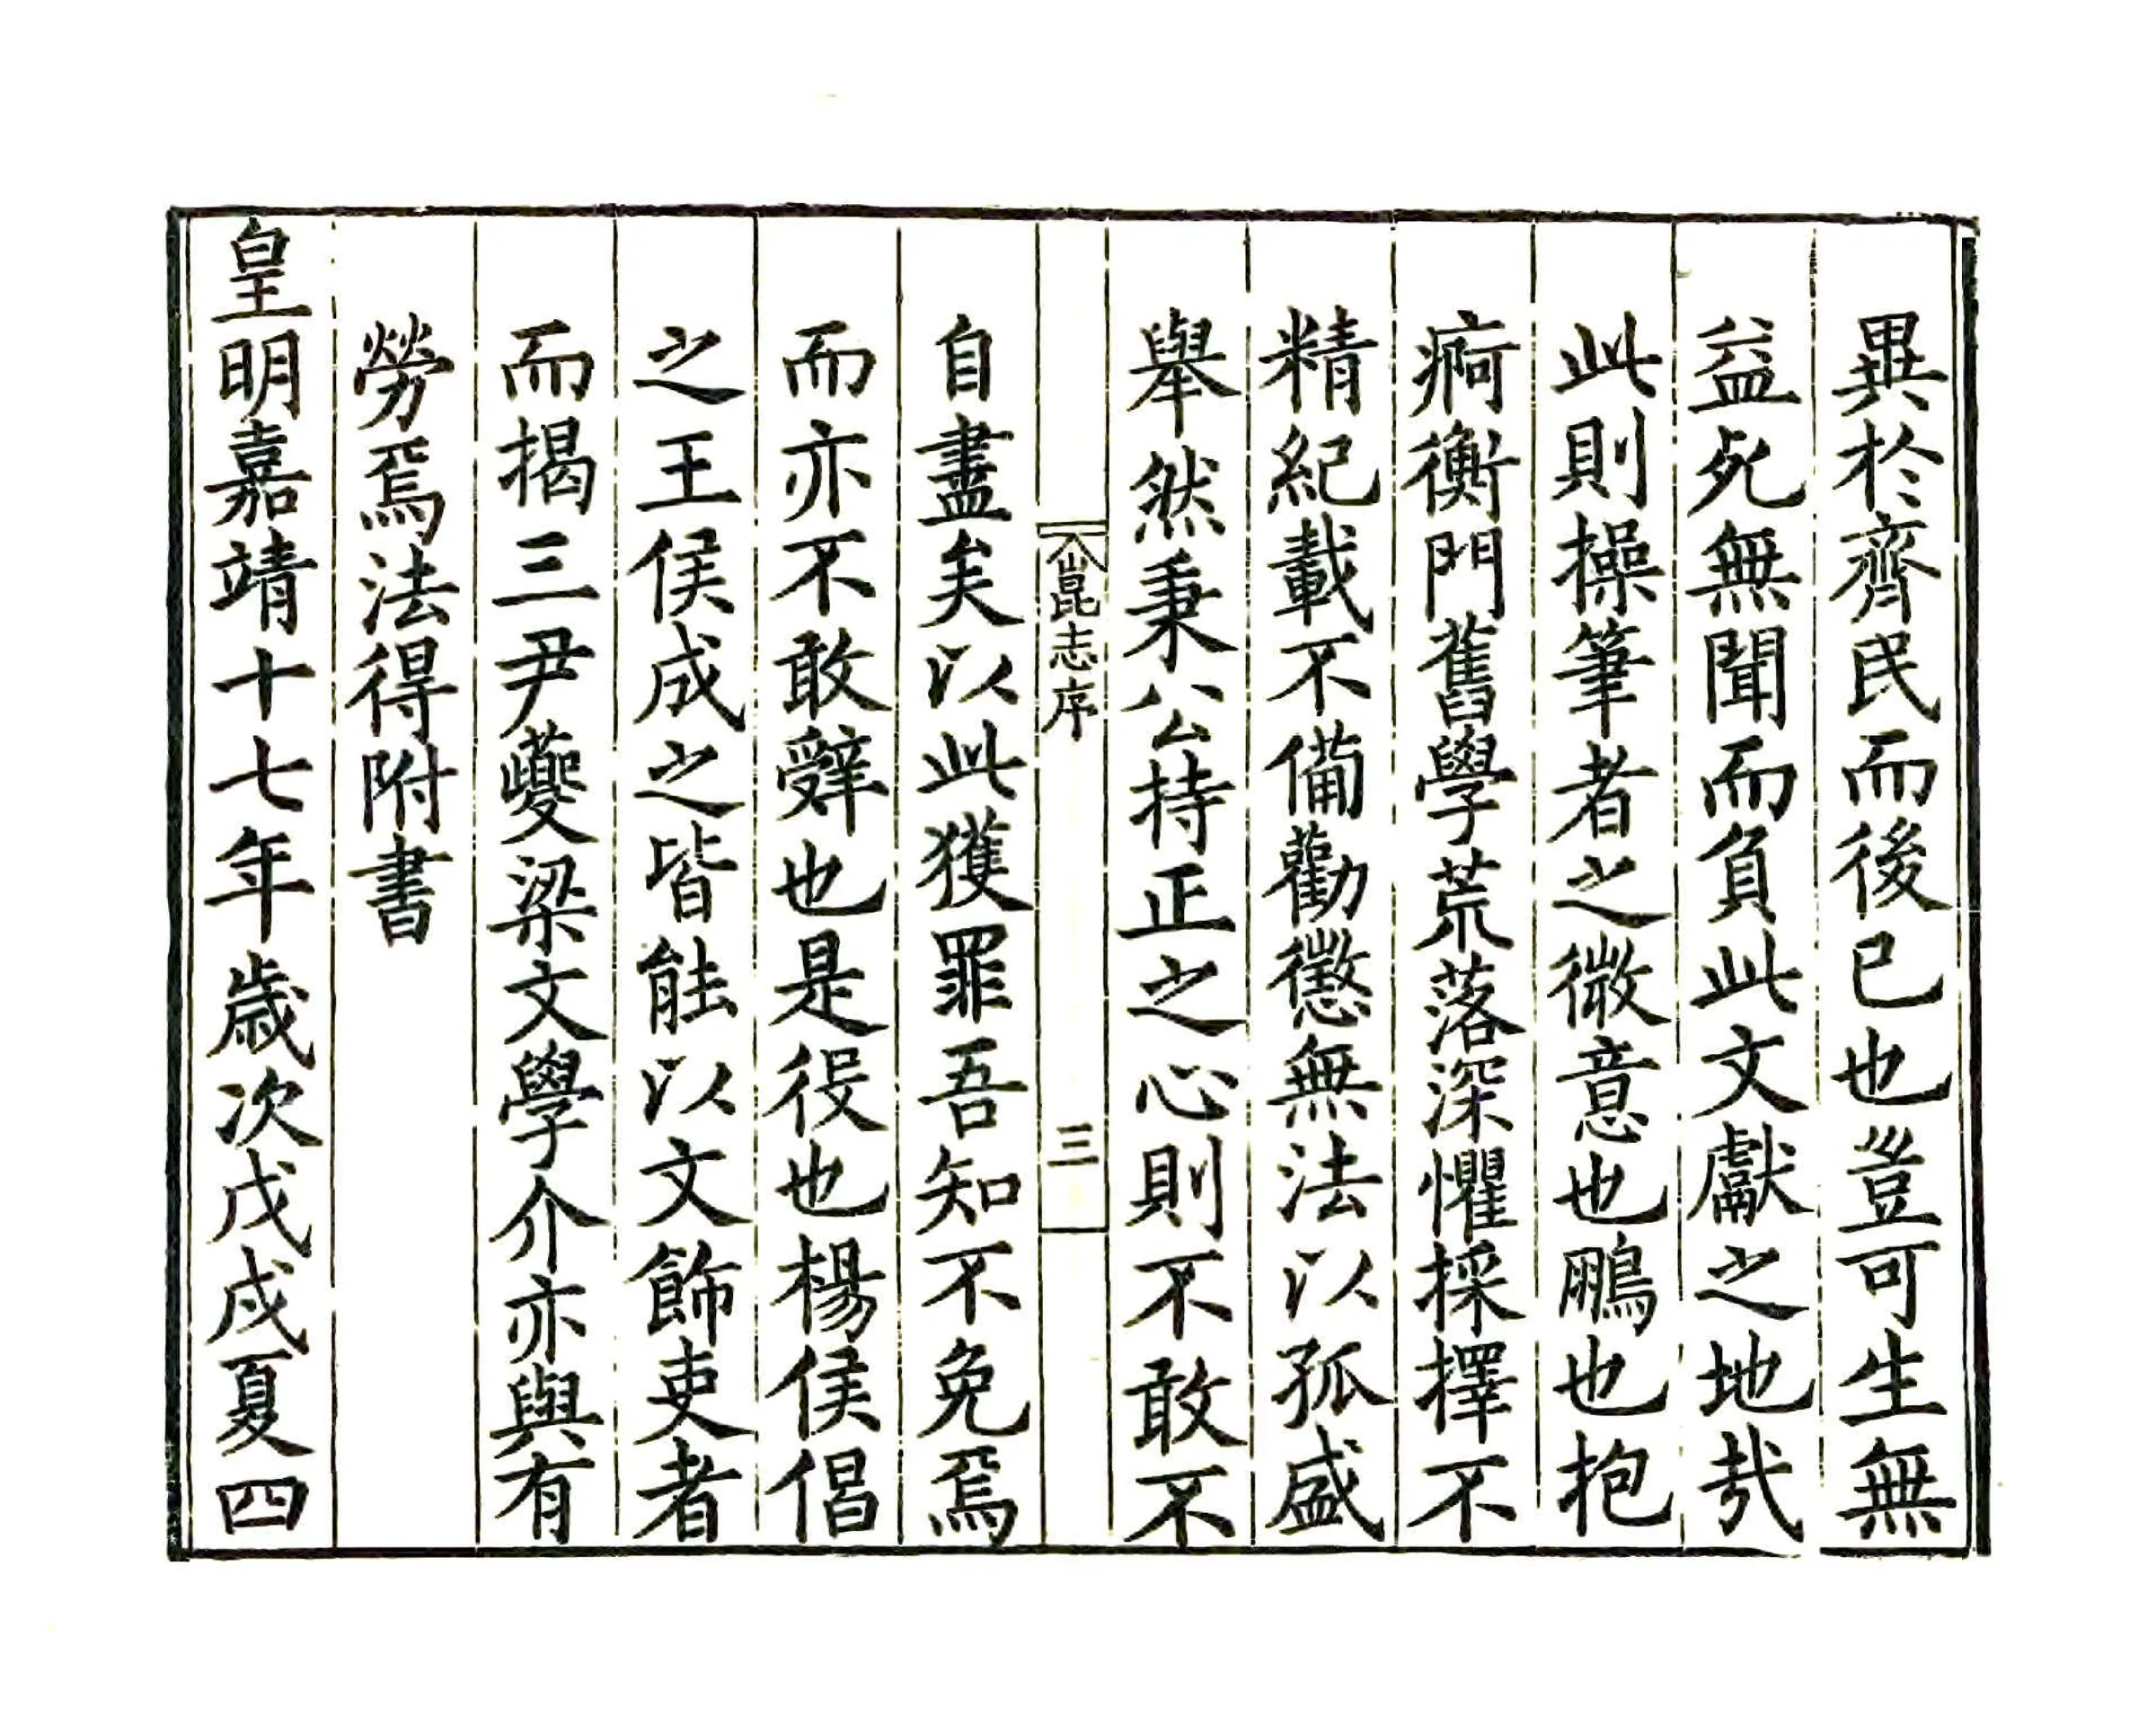 異於齊民而後已也豈可生無
益死無聞而負此文獻之地㢤
此則操筆者之微意也鵬也抱
痾衡門舊學荒落深懼採擇不
精紀載不備勸懲無法以孤盛
舉然秉公持正之心則不敢不
崑志序
三
自盡矣以此獲罪吾知不免焉
而亦不敢辭也是役也楊侯倡
之王侯成之皆能以文飾吏者
而揭三尹夔梁文學介亦與有
勞焉法得附書
皇明嘉靖十七年歲次戊戌夏四